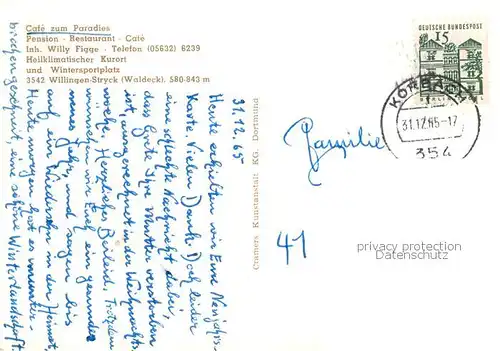 Café zum Paradies
Pension · Restaurant · Café
Inh. Willy Figge · Telefon (05632) 6239
Heilklimatischer Kurort
und Wintersportplatz
3542 Willingen-Stryck (Waldeck), 580-843 m
31.12.65
Heute erhielten wir Eure Neujahrs-
karte. Vielen Dank. Doch leider
eine schlechte Nachricht dabei,
dass Eure Mutter verstorben
ist, ausgerechnet in der Weihnachts-
woche. Herzliches Beileid. Trotzdem
wünschen wir Euch ein gesundes
neues Jahr, und sagen bis
auf ein Wiedersehn in der Heimat.
Heute morgen hat es
geschneit, eine schöne Winterlandschaft.
Cramers Kunstanstalt KG. Dortmund
DEUTSCHE BUNDESPOST
15
KORBACH
31.12.65-17
354
Familie
41
privacy protection
Datenschutz